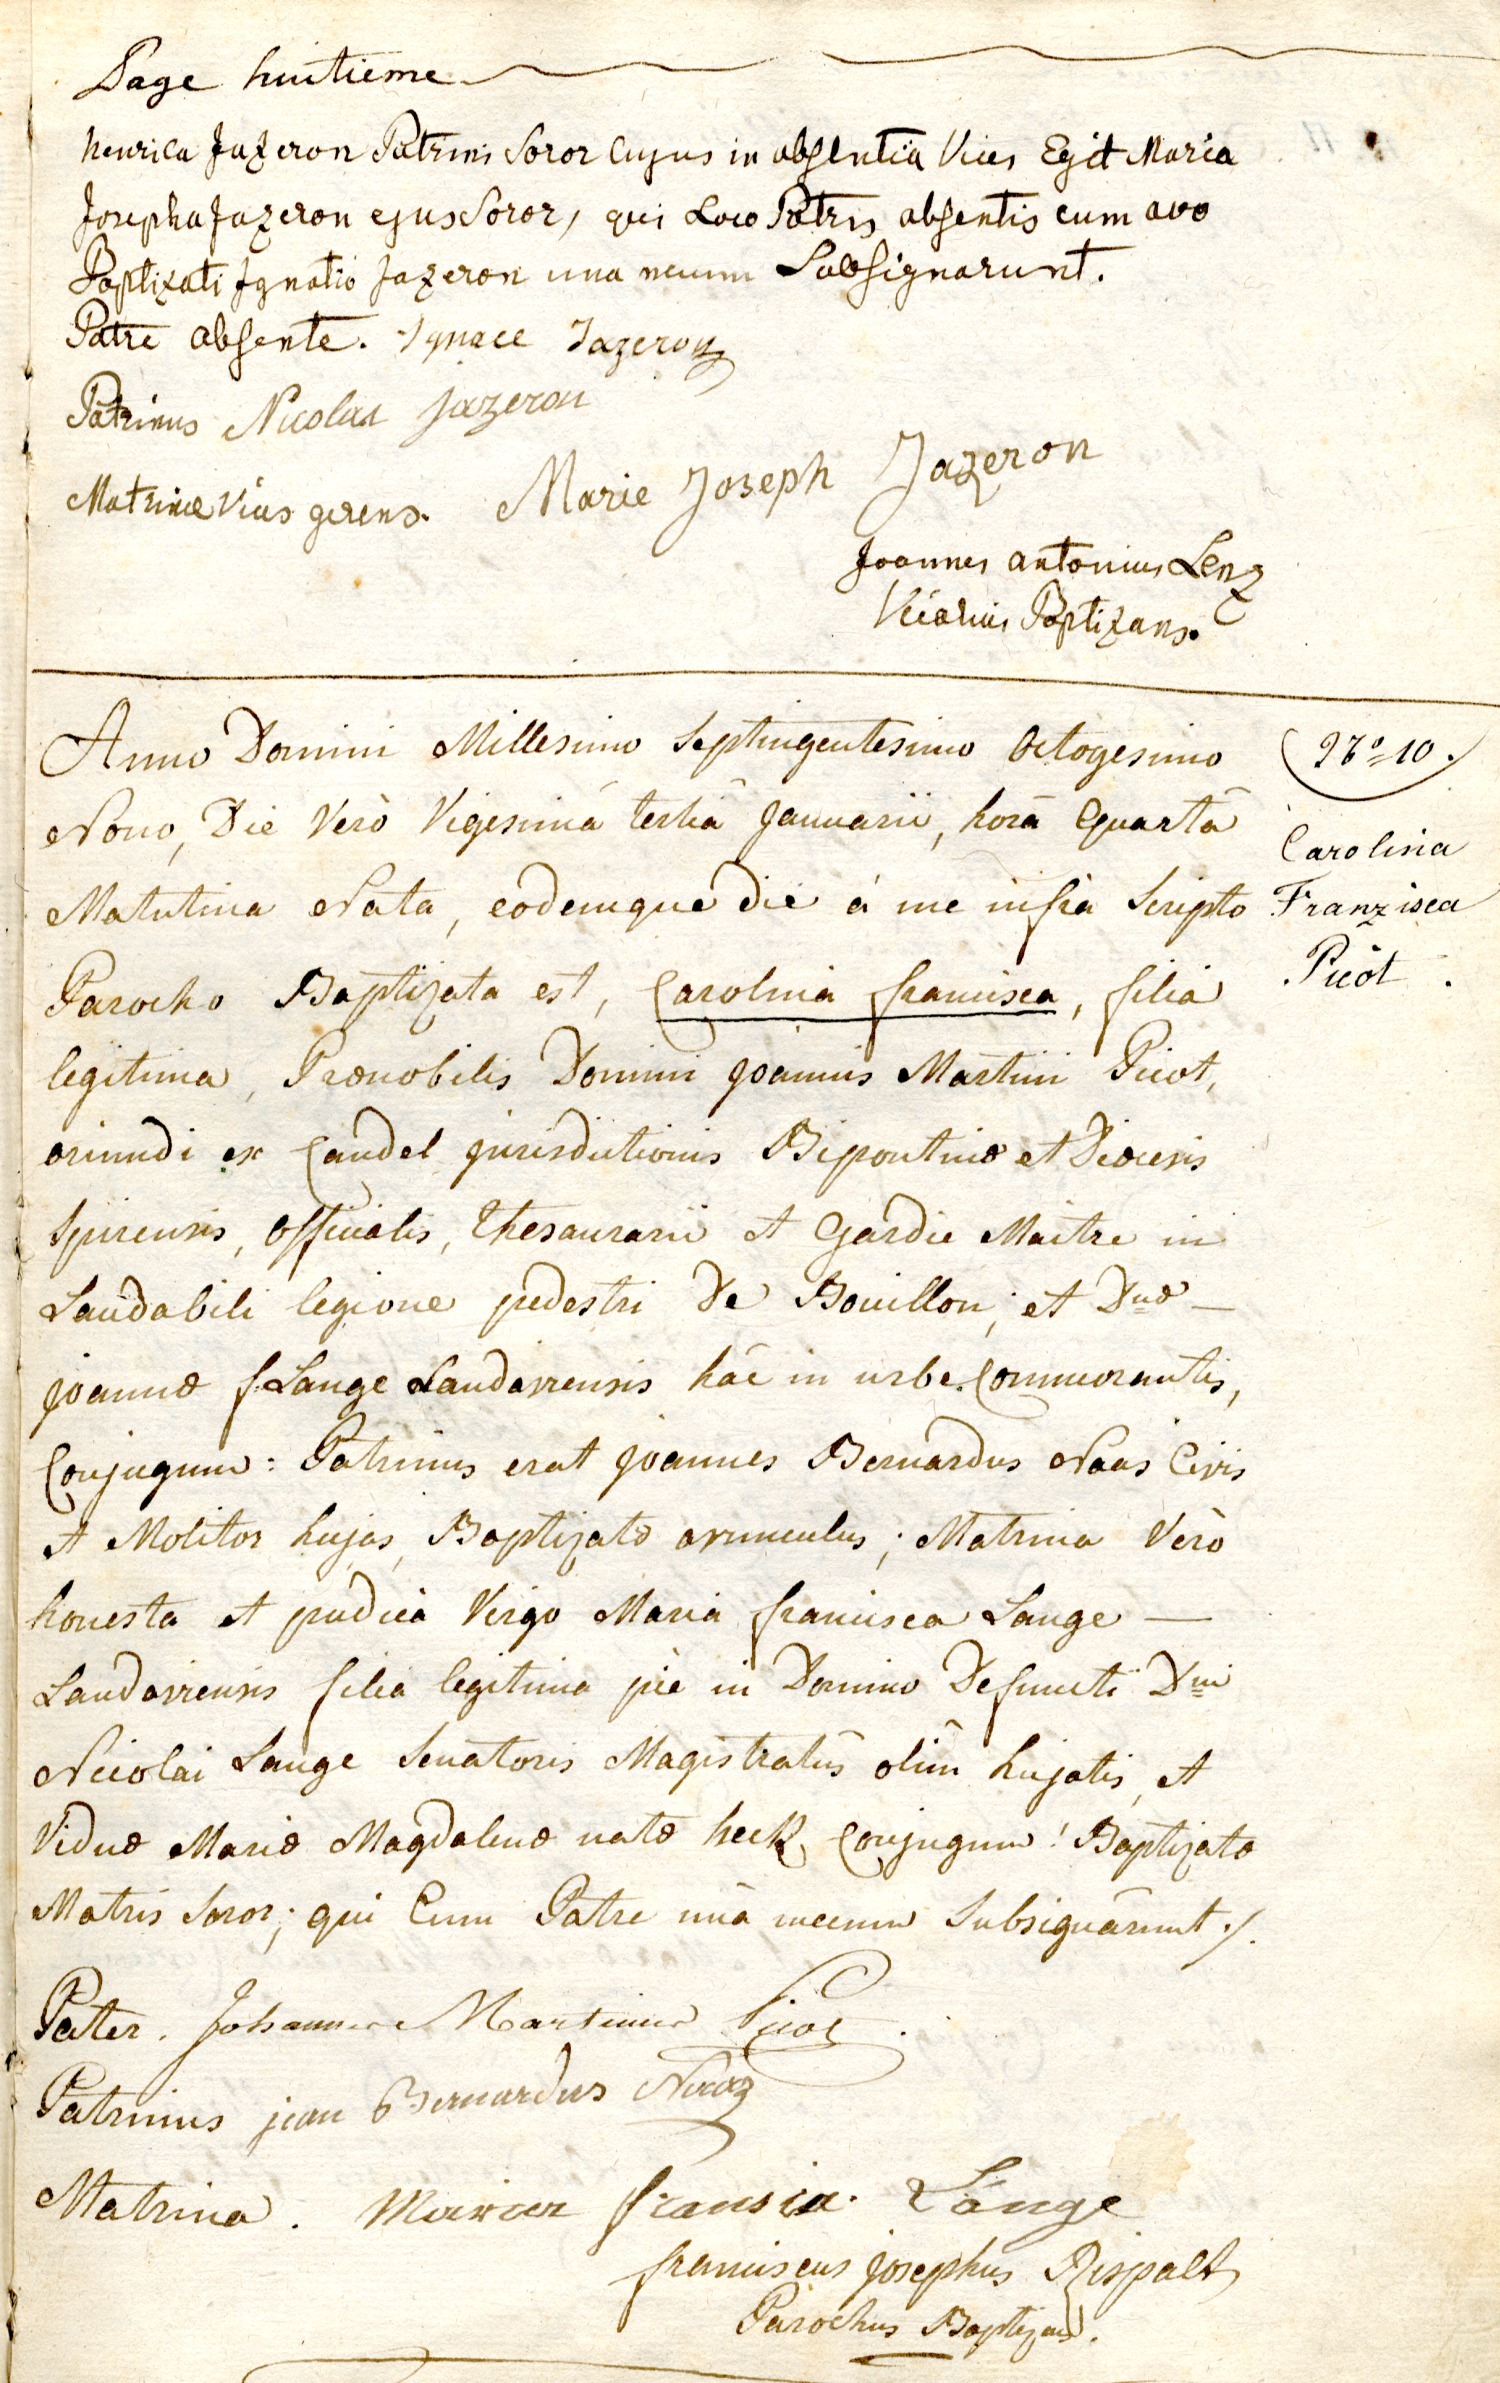 Page huitieme
henrica Jazeron Patrini Soror Cujus in absentia Vices Egit Maria
Josepha Jazeron ejus Soror, qui Loco Patris absentis cum avo
Baptizati Ignatio Jazeron una mecum Subsignarunt.
Patre absente. Ignace Jazeron
Patrinus Nicolas Jazeron
Matrinæ Vices gerens. Marie Joseph Jazeron
Joannes antonius Lenz
Vicarius Baptizans.
Anno Domini Millesimo Septingentesimo Octogesimo
Nono, Die Verò Vigesimâ tertiâ Januarii, horâ Quartâ
Matutina Nata, eodemque die à me infra Scripto
Parocho Baptizata est, Carolina francisca, filia
legitima, Prænobilis Domini Joannis Martini Picot,
oriundi ex Candel jurisdictionis Bipontinæ et Diœcesis
Spirensis, officialis, Thesaurarii et Gardie Maitre in
Laudabili legione pedestri De Bouillon; et Dnæ —
Joannæ f. Lange Landavensis hâc in urbe Commorantis,
Conjugum: Patrinus erat Joannes Bernardus Naas Civis
et Molitor hujas, Baptizatæ avunculus; Matrina Verò
honesta et pudica Virgo Maria francisca Lange —
Landaviensis filia legitima piè in Domino Defuncti Dni
Nicolai Lange Senatoris Magistratûs olim hujatis, et
Viduæ Mariæ Magdalenæ natæ heck Conjugum! Baptizatæ
Matris Soror; qui Cum Patre unà mecum Subsignârunt ./.
Pater. Johannes Martinus Picot.
Patrinus jean Bernardus Naas
Matrina. Maria fransica. Lange
franciscus josephus Rispalt
Parochus Baptizans.
No 10.
Carolina
Franzisca
Picot.